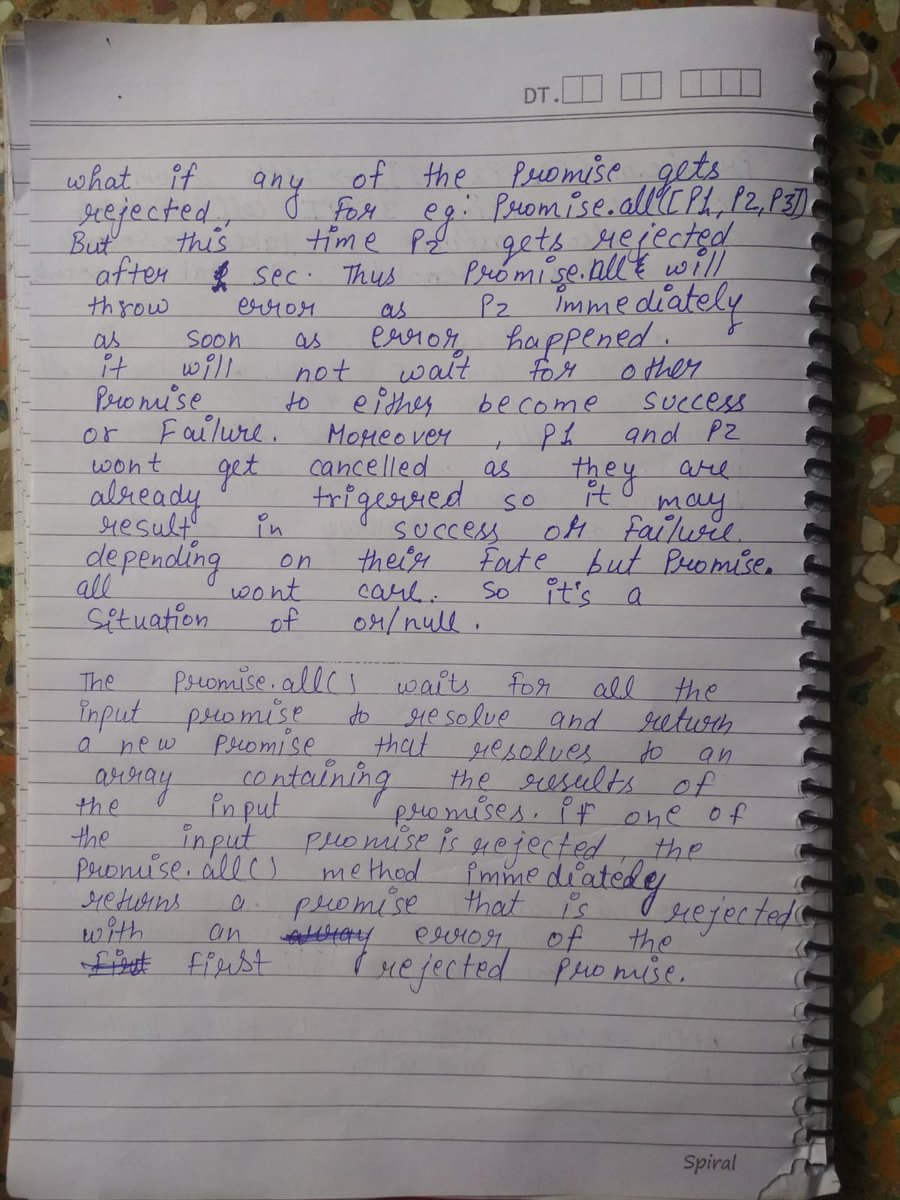 DT.
what if any of the Promise gets
rejected, For eg: Promise.all([P1, P2, P3])
But this time P2 gets rejected
after sec. Thus Promise.All will
throw error as P2 immediately
as soon as error happened.
it will not wait for other
Promise to either become success
or Failure. Moreover, P1 and P2
wont get cancelled as they are
already trigerred so it may
result in success or Failure.
depending on their Fate but Promise.
all wont care. So it's a
Situation of or/null.
The Promise.all() waits for all the
input promise to resolve and return
a new Promise that resolves to an
array containing the results of
the input promises. if one of
the input promise is rejected, the
Promise.all() method immediately
returns a promise that is rejected
with an error of the
first rejected Promise.
Spiral